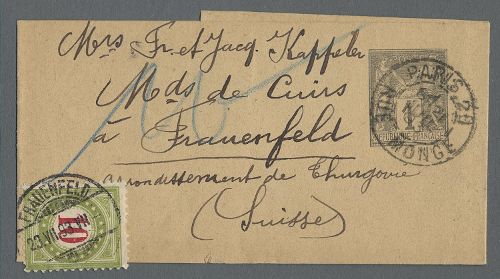 Mrs Fr. et Jacq. Kappeler
Mds de Cuirs
à Frauenfeld
arrondissement de Thurgovie
(Suisse)
PARIS 20
RUE MONGE
REPUBLIQUE FRANÇAISE
FRAUENFELD
10